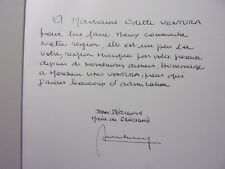 A Madame Odette VENTURA
pour lui faire mieux connaitre
notre région, elle est un peu la
votre région marquée par votre présence
depuis de nombreuses années. Hommage
à Monsieur LINO VENTURA, pour qui
j'avais beaucoup d'admiration
JEAN
Maire de